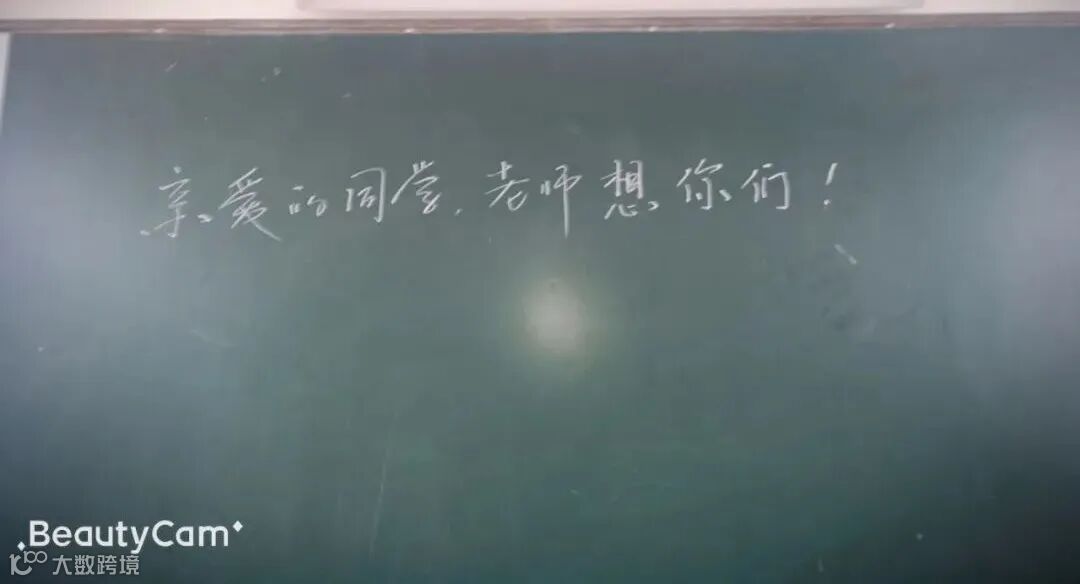 亲爱的同学,老师想你们!
BeautyCam
大数跨境